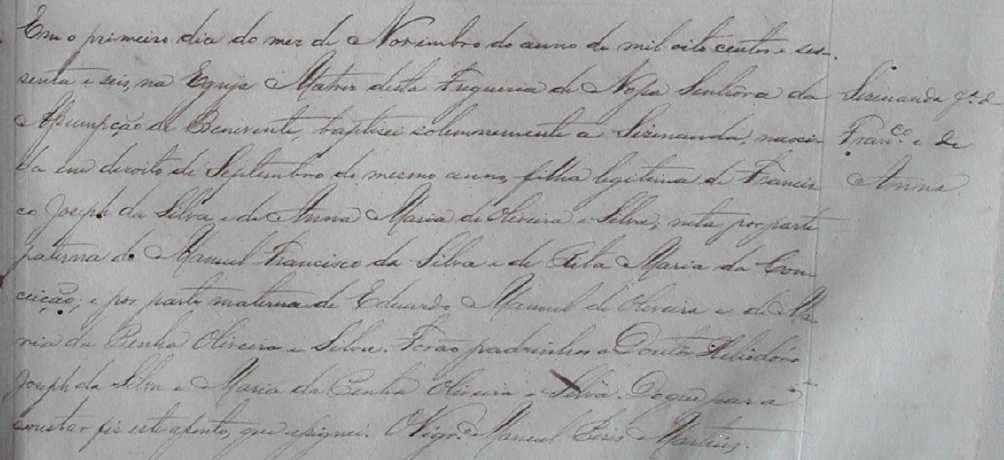 Em o primeiro dia do mez de Novembro do anno de mil oito centos e ses-
senta e seis, na Egreja Matriz desta Freguezia de Nossa Senhora da
Assumpção de Benevente, baptisei solemnemente a Sizenanda, nasci-
da em dezoito de Septembro do mesmo anno, filha legitima de Francis
co Joseph da Silva e de Anna Maria de Oliveira e Silva; neta por parte
paterna de Manuel Francisco da Silva e de Rita Maria da Con-
ceição; e por parte materna de Eduardo Manuel de Oliveira e de Ma-
ria da Penha Oliveira e Silva. Forão padrinhos o Doutor Heliodóro
Joseph da Silva e Maria da Penha Oliveira e Silva. Do que para
constar fiz este assento, que assignei. O Vigr.º Manuel Martins.
Sizenanda f.ª d
Fran.co e de
Anna.